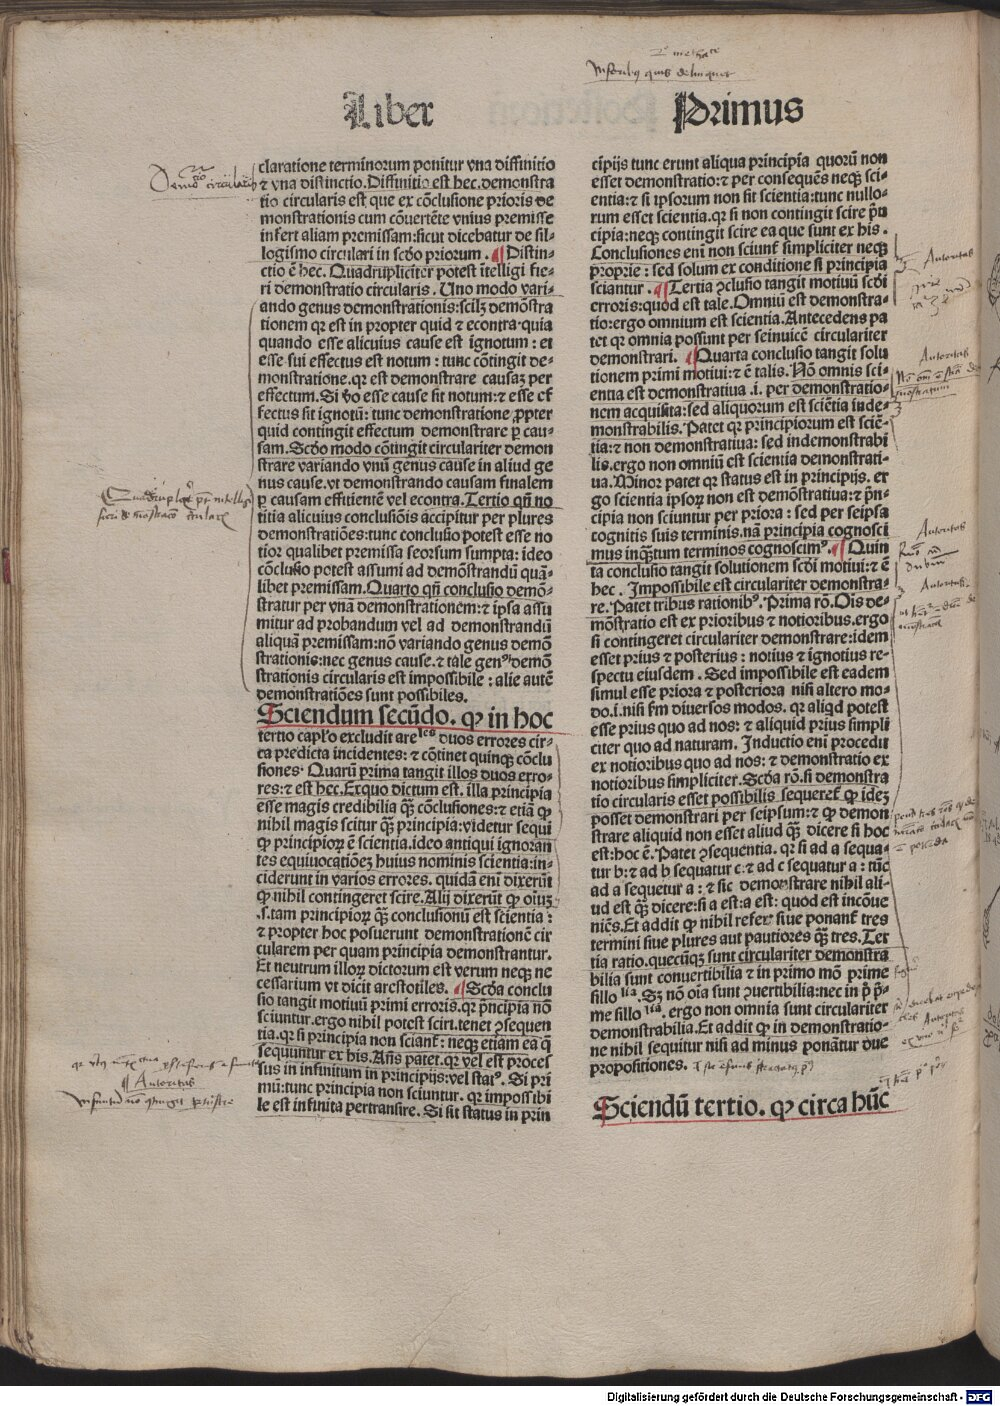 Liber Primus
claratione terminorum ponitur vna diffinitio
⁊ vna distinctio. Diffinitio est hec. demonstra
tio circularis est que ex cõclusione prioris de
monstrationis cum cõuertẽte vnius premisse
infert aliam premissam: sicut dicebatur de sil-
logismo circulari in scdo priorum. ¶ Distin-
ctio ẽ hec. Quadrupliciter potest ĩtelligi fie-
ri demonstratio circularis. Uno modo vari-
ando genus demonstrationis: scilꝫ demõstra
tionem qꝛ est in propter quid ⁊ econtra. quia
quando esse alicuius cause est ignotum: et
esse sui effectus est notum: tunc cõtingit de-
monstratione. qꝛ est demonstrare causaꝫ per
effectum. Si ṽo esse cause sit notum: ⁊ esse ef
fectus sit ignotũ: tunc demonstratione ꝓpter
quid contingit effectum demonstrare ꝑ cau-
sam. Scdo modo cõtingit circulariter demon
strare variando vnũ genus cause in aliud ge
nus cause. vt demonstrando causam finalem
ꝑ causam efficientẽ vel econtra. Tertio qñ no
titia alicuius conclusiõis accipitur per plures
demonstratiões: tunc conclusio potest esse no
tior qualibet premissa seorsum sumpta: ideo
cõclusio potest assumi ad demõstrandũ quã-
libet premissam. Quarto qñ conclusio demõ-
stratur per vnã demonstrationem: ⁊ ipsa assu
mitur ad probandum vel ad demonstrandũ
aliquã premissam: nõ variando genus demõ
strationis: nec genus cause. ⁊ tale genꝰ demõ
strationis circularis est impossibile: alie autẽ
demonstratiões sunt possibiles.
Sciendum secũdo. ꝙ in hoc
tertio caplo excludit areˡᵉˢ duos errores cir-
ca predicta incidentes: ⁊ cõtinet quinqꝫ cõclu
siones. Quarũ prima tangit illos duos erro-
res: ⁊ est hec. Exquo dictum est. illa principia
esse magis credibilia qꝫ cõclusiones: ⁊ etiã ꝙ
nihil magis scitur qꝫ principia: videtur sequi
ꝙ principioꝝ ẽ scientia. ideo antiqui ignoran
tes equiuocationeꝫ huius nominis scientia: in-
ciderunt in varios errores. quidã eni dixerũt
ꝙ nihil contingeret scire. Alij dixerũt ꝙ oiuꝫ
.s. tam principioꝝ qꝫ conclusionũ est scientia:
⁊ propter hoc posuerunt demonstrationẽ cir
cularem per quam principia demonstrantur.
Et neutrum illoꝝ dictorum est verum neqꝫ ne
cessarium vt dicit arestotiles. ¶ Scda conclu
sio tangit motiuũ primi erroris. qꝛ prĩcipia nõ
sciuntur. ergo nihil potest sciri. tenet ꝯsequen
tia. qꝛ si principia non scianť: neqꝫ etiam ea q̃
sequuntur ex his. Añs patet. qꝛ vel est proces
sus in infinitum in principijs: vel statꝰ. Si pri
mũ: tunc principia non sciuntur. qꝛ impossibi
le est infinita pertransire. Si sit status in prin
cipijs tunc erunt aliqua principia quorũ non
esset demonstratio: ⁊ per consequẽs neqꝫ sci-
entia: ⁊ si ipsorum non sit scientia: tunc nullo-
rum esset scientia. qꝛ si non contingit scire prĩ
cipia: neqꝫ contingit scire ea que sunt ex his.
Conclusiones eni non sciunť simpliciter neqꝫ
proprie: sed solum ex conditione si principia
sciantur. ¶ Tertia ꝯclusio tangit motiuũ scdi
erroris: quod est tale. Omniũ est demonstra-
tio: ergo omnium est scientia. Antecedens pa
tet qꝛ omnia possunt per seinuicẽ circulariter
demonstrari. ¶ Quarta conclusio tangit solu
tionem primi motiui: ⁊ ẽ talis. Nõ omnis sci-
entia est demonstratiua .i. per demonstratio-
nem acquisita: sed aliquorum est sciẽtia inde-
monstrabilis. Patet qꝛ principiorum est sciẽ-
tia: ⁊ non demonstratiua: sed indemonstrabi
lis. ergo non omniũ est scientia demonstrati-
ua. Minor patet qꝛ status est in principijs. er
go scientia ipsoꝝ non est demõstratiua: ⁊ prĩ-
cipia non sciuntur per priora: sed per seipsa
cognitis suis terminis. nã principia cognosci
mus inqꝫtum terminos cognoscimꝰ. ¶ Quin
ta conclusio tangit solutionem scdi motiui: ⁊ ẽ
hec. Impossibile est circulariter demonstra-
re. Patet tribus rationibꝰ. Prima rõ. Ois de-
mõstratio est ex prioribus ⁊ notioribus. ergo
si contingeret circulariter demonstrare: idem
esset prius ⁊ posterius: notius ⁊ ignotius re-
spectu eiusdem. Sed impossibile est eadem
simul esse priora ⁊ posteriora nisi altero mo-
do. i. nisi fm diuersos modos. qꝛ aliqd potest
esse prius quo ad nos: ⁊ aliquid prius simpli
citer quo ad naturam. Inductio eni procedit
ex notioribus quo ad nos: ⁊ demonstratio ex
notioribus simpliciter. Scda rõ. si demonstra
tio circularis esset possibilis sequereť ꝙ ideꝫ
posset demonstrari per seipsum: ⁊ ꝙ demon
strare aliquid non esset aliud qꝫ dicere si hoc
est: hoc ẽ. Patet ꝯsequentia. qꝛ si ad a sequa-
tur b: ⁊ ad b sequatur c: ⁊ ad c sequatur a: tũc
ad a sequetur a: ⁊ sic demonstrare nihil ali-
ud est qꝫ dicere: si a est: a est: quod est incõue
niẽs. Et addit ꝙ nihil referť siue ponanť tres
termini siue plures aut pautiores qꝫ tres. Ter
tia ratio. quecũqꝫ sunt circulariter demonstra
bilia sunt conuertibilia ⁊ in primo mõ prime
filloˡⁱᵃ. Sꝫ nõ oia sunt ꝯuertibilia: nec in p̃ p̃-
me filloⁱⁱᵃ. ergo non omnia sunt circulariter
demonstrabilia. Et addit ꝙ in demonstratio-
ne nihil sequitur nisi ad minus ponãtur due
propositiones.
Sciendũ tertio. ꝙ circa hũc
Autoritas
Autoritas
Autoritas
Autoritas
Autoritas
Digitalisierung gefördert durch die Deutsche Forschungsgemeinschaft - DFG